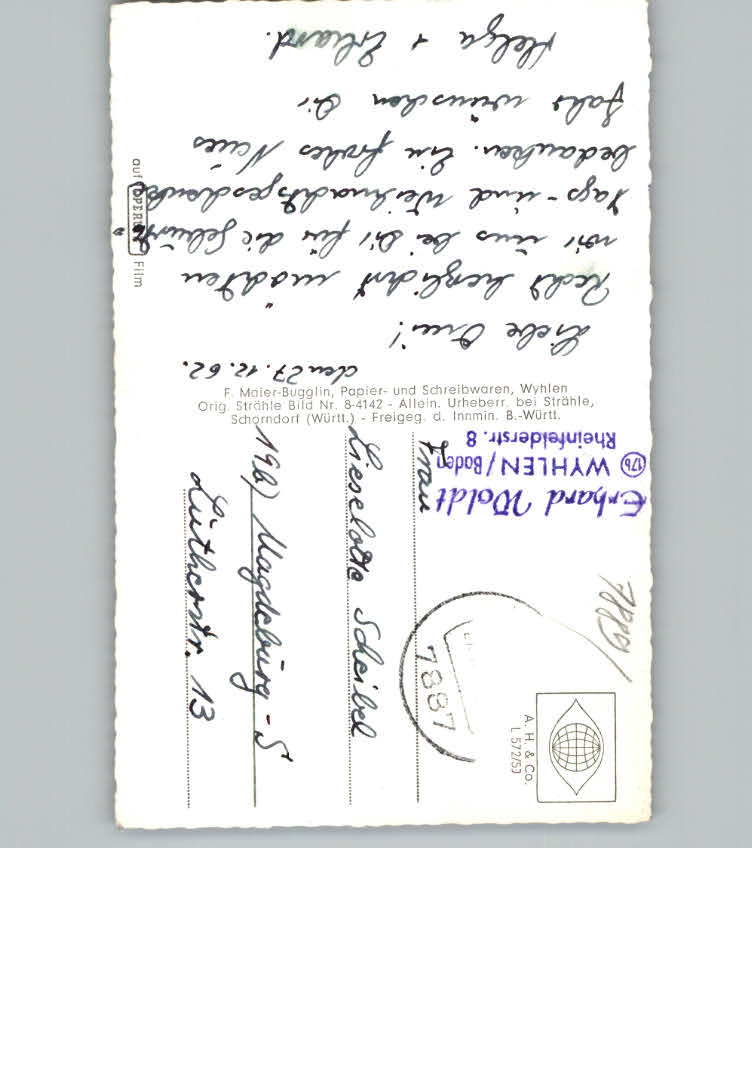 den 27.12.62.
Liebe Omi!
Recht herzlichst möchten
wir uns bei Dir für die Geburts-
tags- und Weihnachtsgeschenke
bedanken. Ein frohes Neues
Jahr wünschen Dir
Helga + Erhard.
auf OPERL Film
F. Maier-Bugglin, Papier- und Schreibwaren, Wyhlen
Orig. Strähle Bild Nr. 8-4142 - Allein. Urheberr. bei Strähle,
Schorndorf (Württ.) - Freigeg. d. Innmin. B.-Württ.
Erhard Woldt
17b WYHLEN/Baden
Rheinfelderstr. 8
7887
A. H. & Co.
L 572/53
Frau
Lieselotte Scheibel
19b) Magdeburg-S
Lutherstr. 13